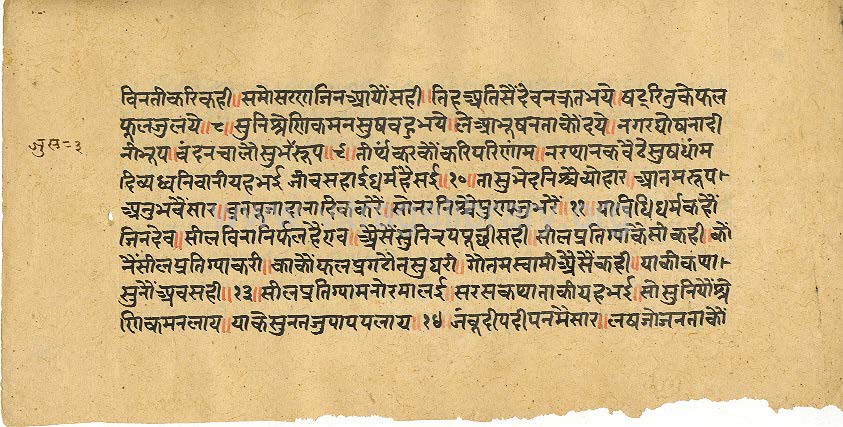 विनतीकरिकही॥समोसरणजिनआयौसही॥तिहअतिसैदेवनकृतभये॥षट्रितुकेफल
फूलजुलये॥८॥सुनिश्रेणिकमनसुषबहुभये॥लेआभूषनताकौंदये॥नगरघोषनादी
जुस=३
नीभूप॥वंदनचालौसुभरूप॥९॥तीर्थंकरकौंकरिपरिणाम॥नरथानकबैठेसुषधाम
दिव्यध्वनिवानीयहभई॥जीवसहाईधर्महैसई॥१०॥तासुभेदनिश्चैव्योहार॥आनमरूप
अनुभवैसार॥व्रतपूजादानादिककरै॥सोनरनिश्चैपुण्यजुभरै॥११॥याविधिधर्मकहौं
जिनदेव॥सीलविनानिर्फलहैएव॥अैसैंसुनिनृपपूछीसही॥सीलप्रतिग्याकैसीकही॥कौ
नैंसीलप्रतिग्याकरी॥काकौंफलप्रगटौनसुघरी॥गौतमस्वामीअैसैंकही॥याकीकथा
सुनौंअबसही॥१३॥सीलप्रतिग्यामनोरमालई॥सरसकथाताकीयहभई॥सोसुनियौंश्रे
णिकमनलाय॥याकेसुनतजुपापपलाय॥१४॥जंबूदीपदीपनमैंसार॥लषजोजनताकौं